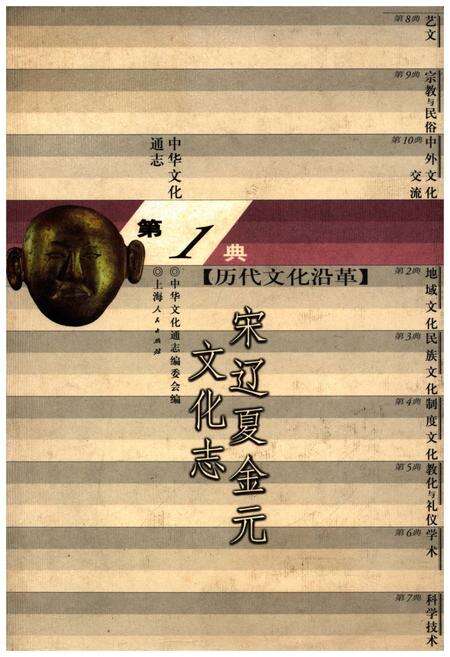 第8典
艺文
第9典
宗教与民俗
第10典
中外文化
交流
中华文化
通志
第1典
【历代文化沿革】
◎中华文化通志编委会编
◎上海人民出版社
宋辽夏金元
文化志
第2典
地域文化
第3典
民族文化
第4典
制度文化
第5典
教化与礼仪
第6典
学术
第7典
科学技术